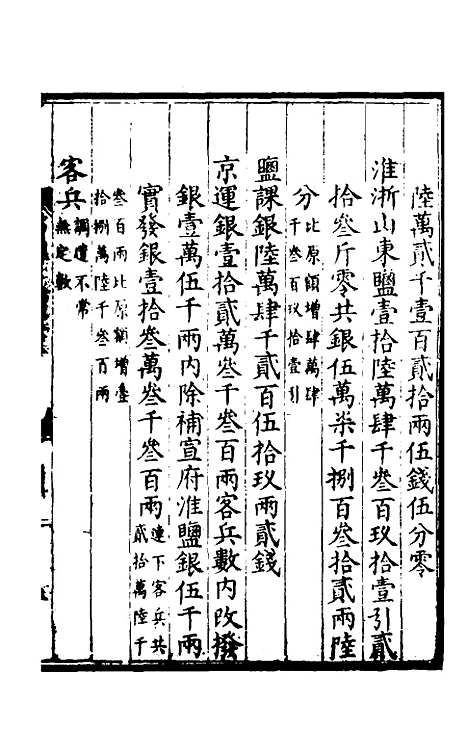 陸萬貳千壹百貳拾兩伍錢伍分零
淮浙山東鹽壹拾陸萬肆千叁百玖拾壹引貳
拾叁斤零共銀伍萬柒千捌百叁拾貳兩陸
分比原額增肆萬肆
千叁百玖拾壹引
鹽課銀陸萬肆千貳百伍拾玖兩貳錢
京運銀壹拾貳萬叁千叁百兩客兵數內改撥
銀壹萬伍千兩內除補宣府淮鹽銀伍千兩
實發銀壹拾叁萬叁千叁百兩連下客兵共
貳拾萬陸千
叁百兩比原額增壹
拾捌萬陸千叁百兩
客兵調遣不常
無定數